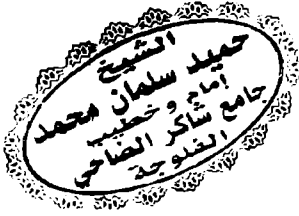 الشيخ
حميد سلمان محمد
إمام وخطيب
جامع شاكر الضاحي
الفلوجة